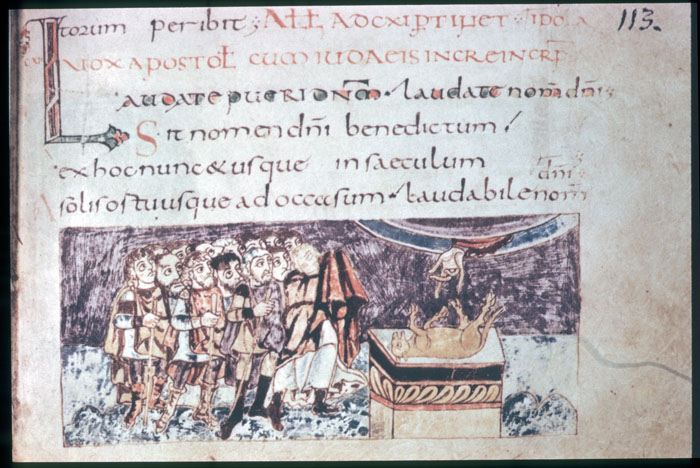 torum peribit;
113.
VOX APOSTOL CUM IUDAEIS INCRE
LAUDATE PUERI DNM • laudate nom dni;
Sit nomen dni benedictum
ex hoc nunc & usque in saeculum
A solis ortu usque ad occasum • laudabile nom dni